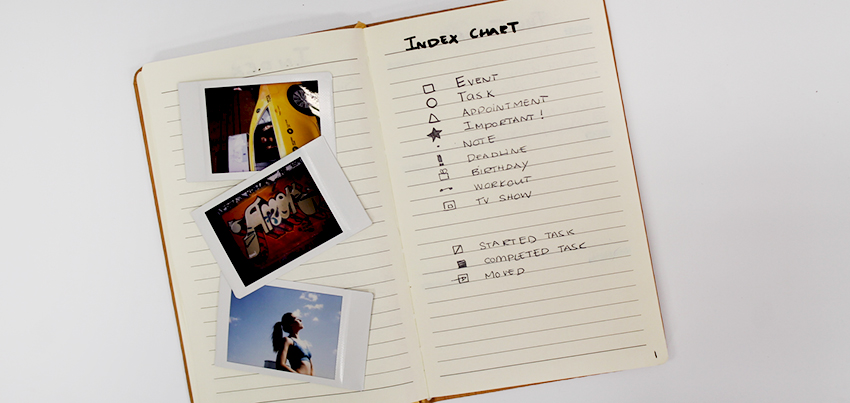 INDEX CHART
EVENT
TASK
APPOINTMENT
IMPORTANT!
NOTE
DEADLINE
BIRTHDAY
WORKOUT
TV SHOW
STARTED TASK
COMPLETED TASK
MOVED
1